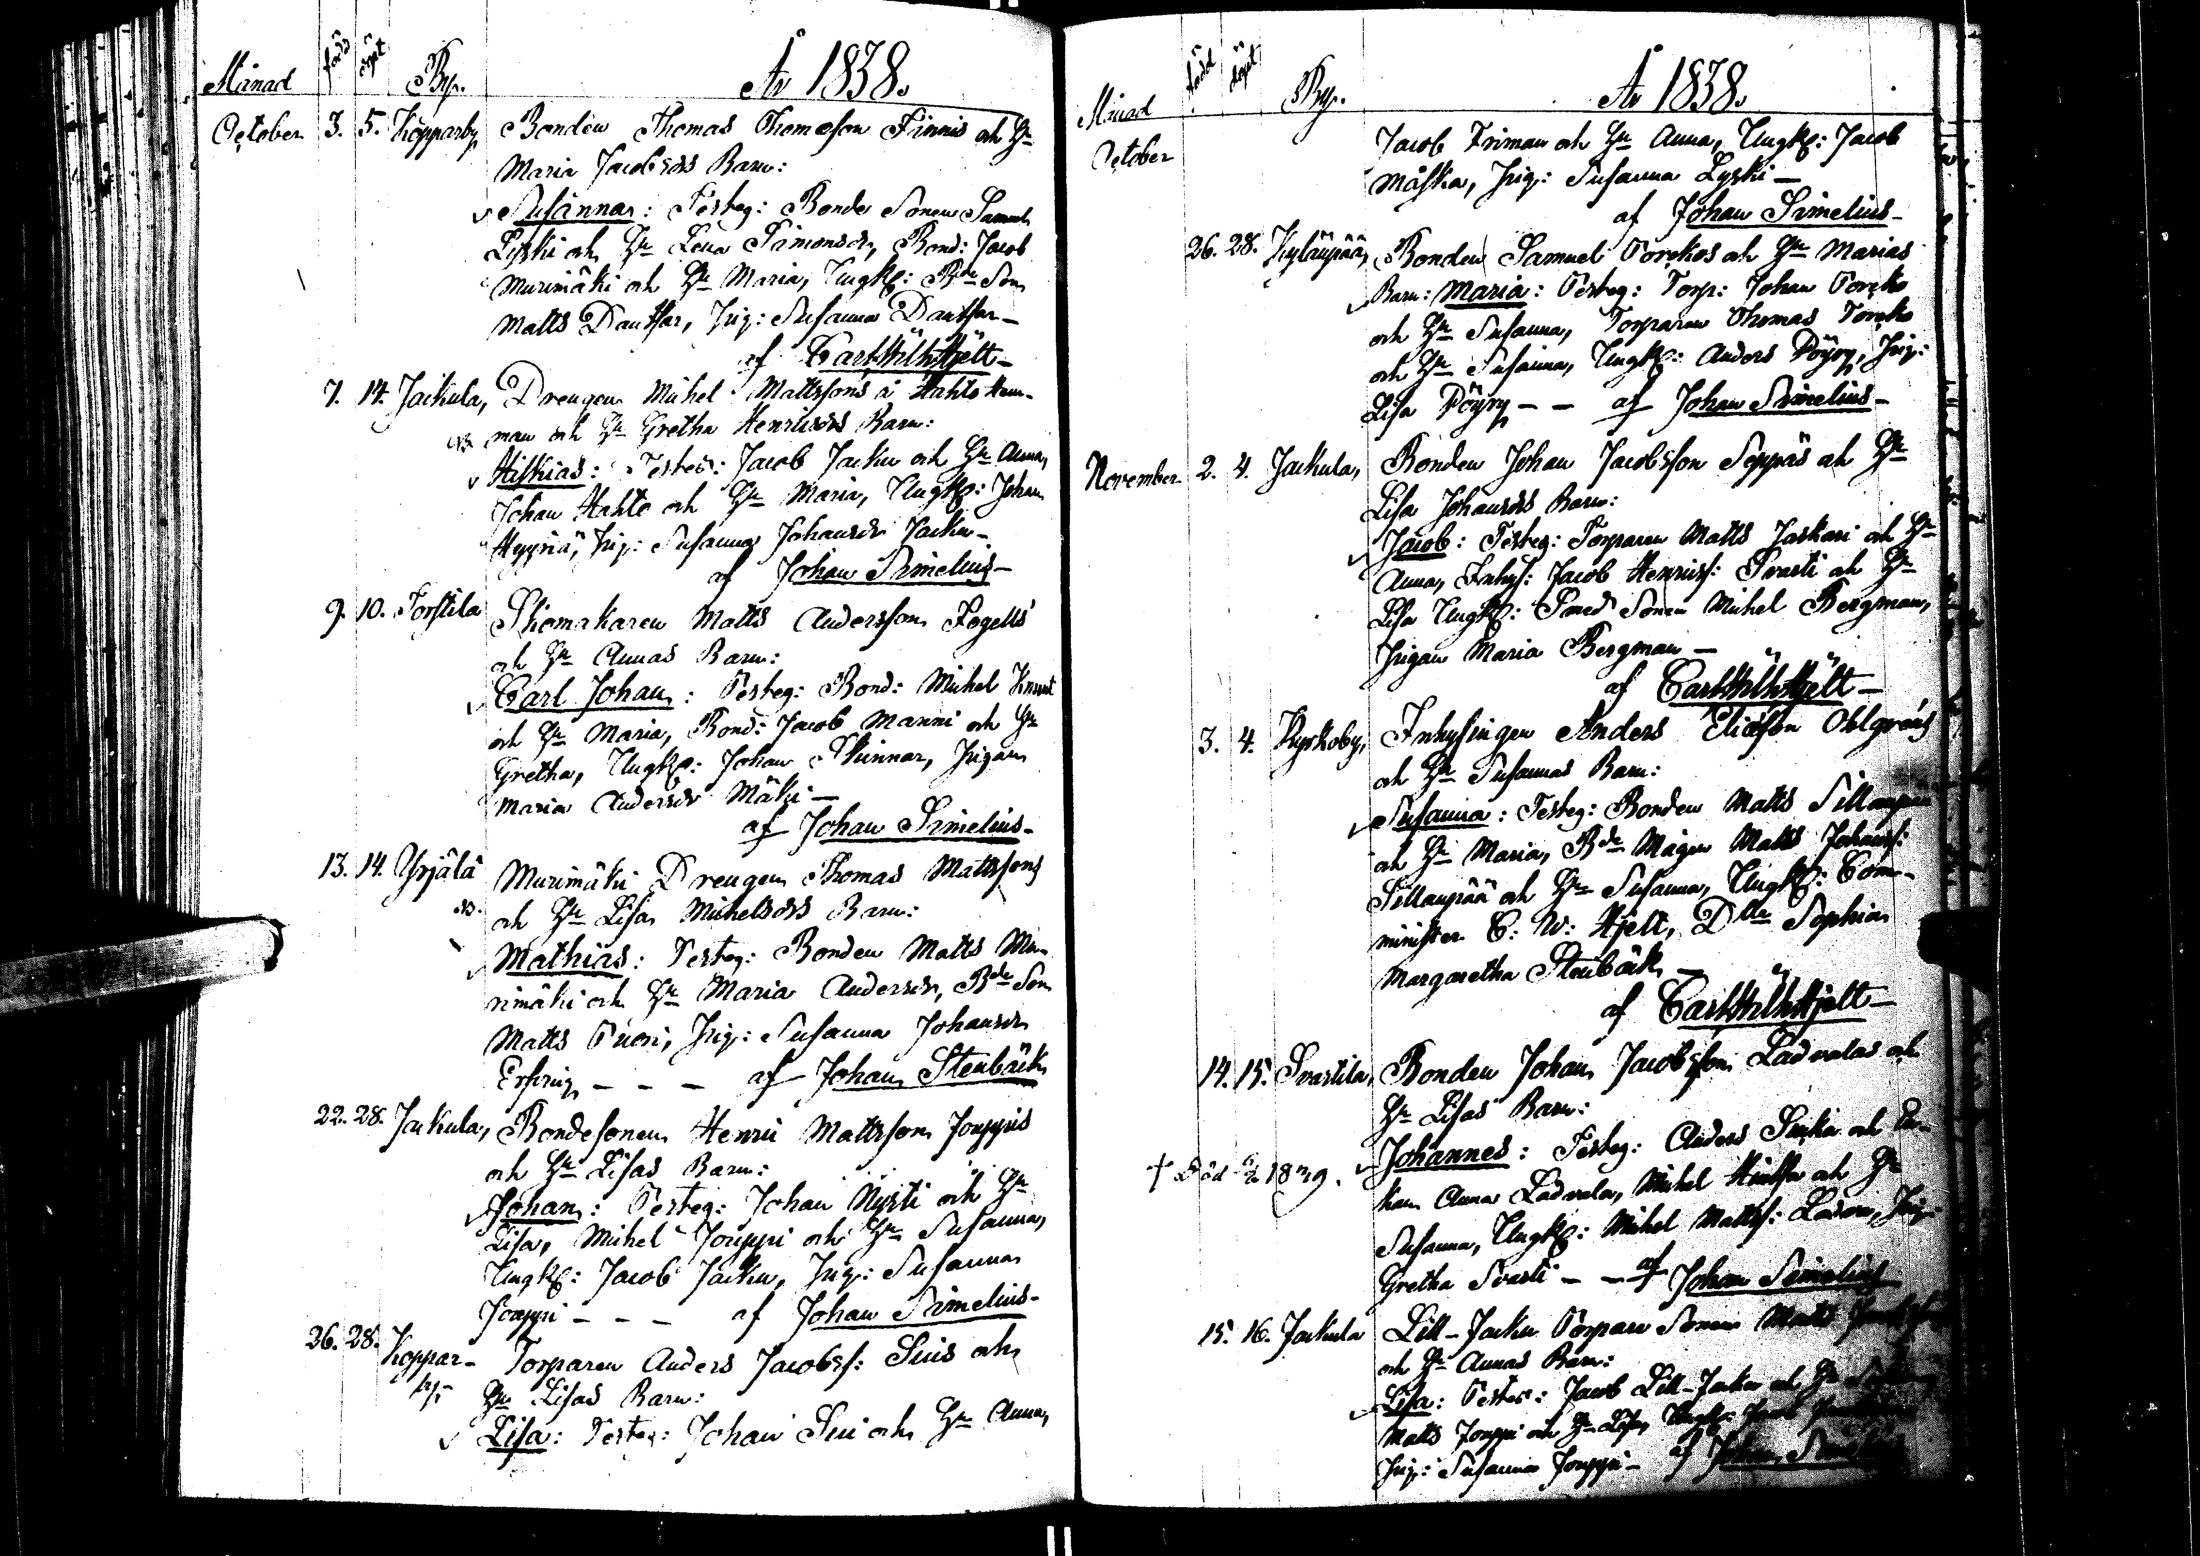 Månad född döpt By. År 1838.
October 3. 5. Kopparby Bonden Thomas Thomasson Finnis och H:u
Maria Jacobsdrs Barn:
Susanna: Testeg: Bonde Sonen Samuel
Liski och H:u Lena Simonsdr, Bond: Jacob
Murimäki och H:u Maria, Ungk: Bde Son
Matts Danthar, Pig: Susanna Danthar —
af Carl Wilh Hjelt —
7. 14. Jackula, Drengen Michel Mattssons å Kahto Hem-
man och H:u Gretha Henricsdrs Barn:
Hiskias: Testes: Jacob Jacku och H:u Anna,
Johan Kahto och H:u Maria, Ungk: Johan
Hyyriä, Pig: Susanna Johansdr Jacku —
af Johan Simelius —
9. 10. Torstila Skomakaren Matts Andersson Fogells
och H:u Annas Barn:
Carl Johan: Testeg: Bond: Michel Knuut
och H:u Maria, Bond: Jacob Manni och H:u
Gretha, Ungk: Johan Skinnar, Pigan
Maria Andersdr Mäki —
af Johan Simelius —
13. 14. Yrjälä Murimäki Drengen Thomas Mattssons
och H:u Lisa Michelsdrs Barn:
Mathias: Testeg: Bonden Matts Mu-
rimäki och H:u Maria Andersdr, Bde Son
Matts Puori, Pig: Susanna Johansdr
— — — af Johan Stenbäck
22. 28. Jackula, Bondesonen Henric Mattsson Jouppis
och H:u Lisas Barn:
Johan: Testeg: Johan Nysti och H:u
Lisa, Michel Jouppi och H:u Susanna,
Ungk: Jacob Jacku, Pig: Susanna
Jouppi — — — af Johan Simelius —
26. 28. Koppar- Torparen Anders Jacobss: Suis och
by H:u Lisas Barn:
Lisa: Testes: Johan Sui och H:u Anna,
Månad född döpt By. År 1838.
October Jacob Friman och H:u Anna, Ungk: Jacob
Måska, Pig: Susanna Lyski —
af Johan Simelius —
26. 28. Kyläupää, Bonden Samuel Porekos och H:u Marias
Barn: Maria: Testeg: Torp: Johan Poreko
och H:u Susanna, Torparen Thomas Poreko
och H:u Susanna, Ungk: Anders Pöyry, Pig:
Lisa Pöyry — — af Johan Simelius —
November 2. 4. Jackula, Bonden Johan Jacobsson Seppäs och H:u
Lisa Johansdrs Barn:
Jacob: Testeg: Torparen Matts Jaskari och H:u
Anna, Inhys: Jacob Henricss: Svasti och H:u
Lisa Ungk: Smed Sonen Michel Bergman,
Pigan Maria Bergman —
af Carl Wilh Hjelt —
3. 4. Kyrkoby, Inhysingen Anders Eliasson Ohlgréns
och H:u Susannas Barn:
Susanna: Testeg: Bonden Matts Sillanpää
och H:u Maria, Bde Mågen Matts Johanss:
Sillanpää och H:u Susanna, Ungk: Com-
minister C: W: Hjelt, Dlle Sophia
Margaretha Stenbäck —
af Carl Wilh Hjelt —
14. 15. Svastila, Bonden Johan Jacobsson Ladvalas och
H:u Lisas Barn:
† Död 1839. Johannes: Testeg: Anders och En-
kan Anna Ladvala, Michel och H:u
Susanna, Ungk: Michel Mattss: Pig:
Gretha Svasti — — af Johan Simelius
15. 16. Jackula Lill-Jacku Torpare Sonen Matts
och H:u Annas Barn:
Lisa: Testes: Jacob Lill-Jacku och H:u
Matts Jouppi och H:u Lisa, Ungk:
Pig: Susanna Jouppi — af Johan Simelius